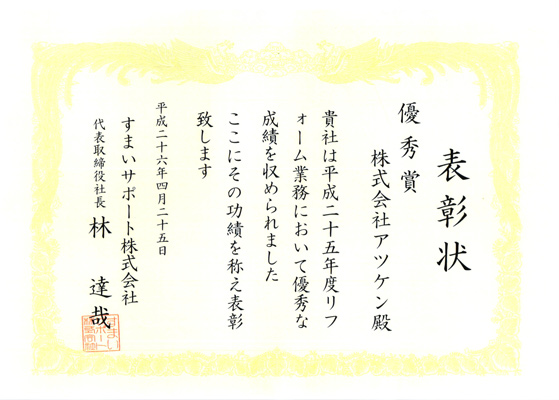 表彰状
優秀賞
株式会社アツケン殿
貴社は平成二十五年度リフ
ォーム業務において優秀な
成績を収められました
ここにその功績を称え表彰
致します
平成二十六年四月二十五日
すまいサポート株式会社
代表取締役社長 林 達哉